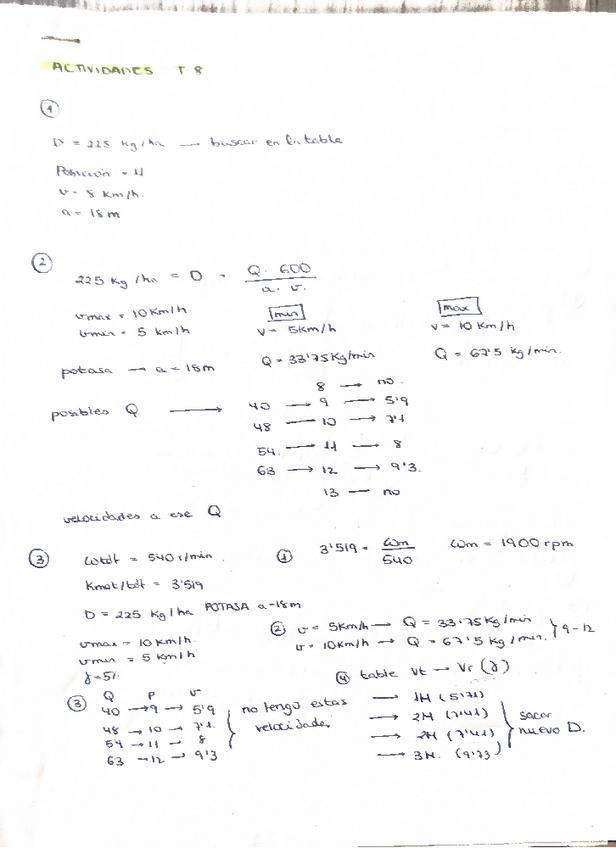 ACTIVIDADES T 8
①
D = 225 Kg/ha → buscar en la table
Posición = 11
v = 8 km/h.
a = 18 m
②
225 Kg/ha = D = Q · 600 / a · v.
vmax = 10 Km/h
vmin = 5 km/h
min
v = 5 Km/h
Q = 33'75 Kg/min
max
v = 10 Km/h.
Q = 67'5 kg/min.
potasa → a = 18m
posibles Q →
8 → no.
40 → 9 → 5'9
48 → 10 → 7'1
54. → 11 → 8
63 → 12 → 9'3.
13 — no
velocidades a ese Q
③
ωtdf = 540 r/min.
① 3'519 = ωm / 540 ωm = 1900 rpm
Kmot/tdf = 3'519
D = 225 Kg/ha POTASA a=18m
② v = 5Km/h → Q = 33'75 Kg/min
v = 10Km/h → Q = 67'5 Kg/min. } 9-12
vmax = 10 km/h.
vmin = 5 Km/h
④ table vt → vr (γ)
③ Q P v
40 → 9 → 5'9
48 → 10 → 7'1.
54 → 11 → 8
63 → 12 → 9'3
no tengo estas
velocidades
→ 1H (5'71)
→ 2H (7'41)
→ 2H (7'41)
→ 3H. (9'73)
sacar
nuevo D.